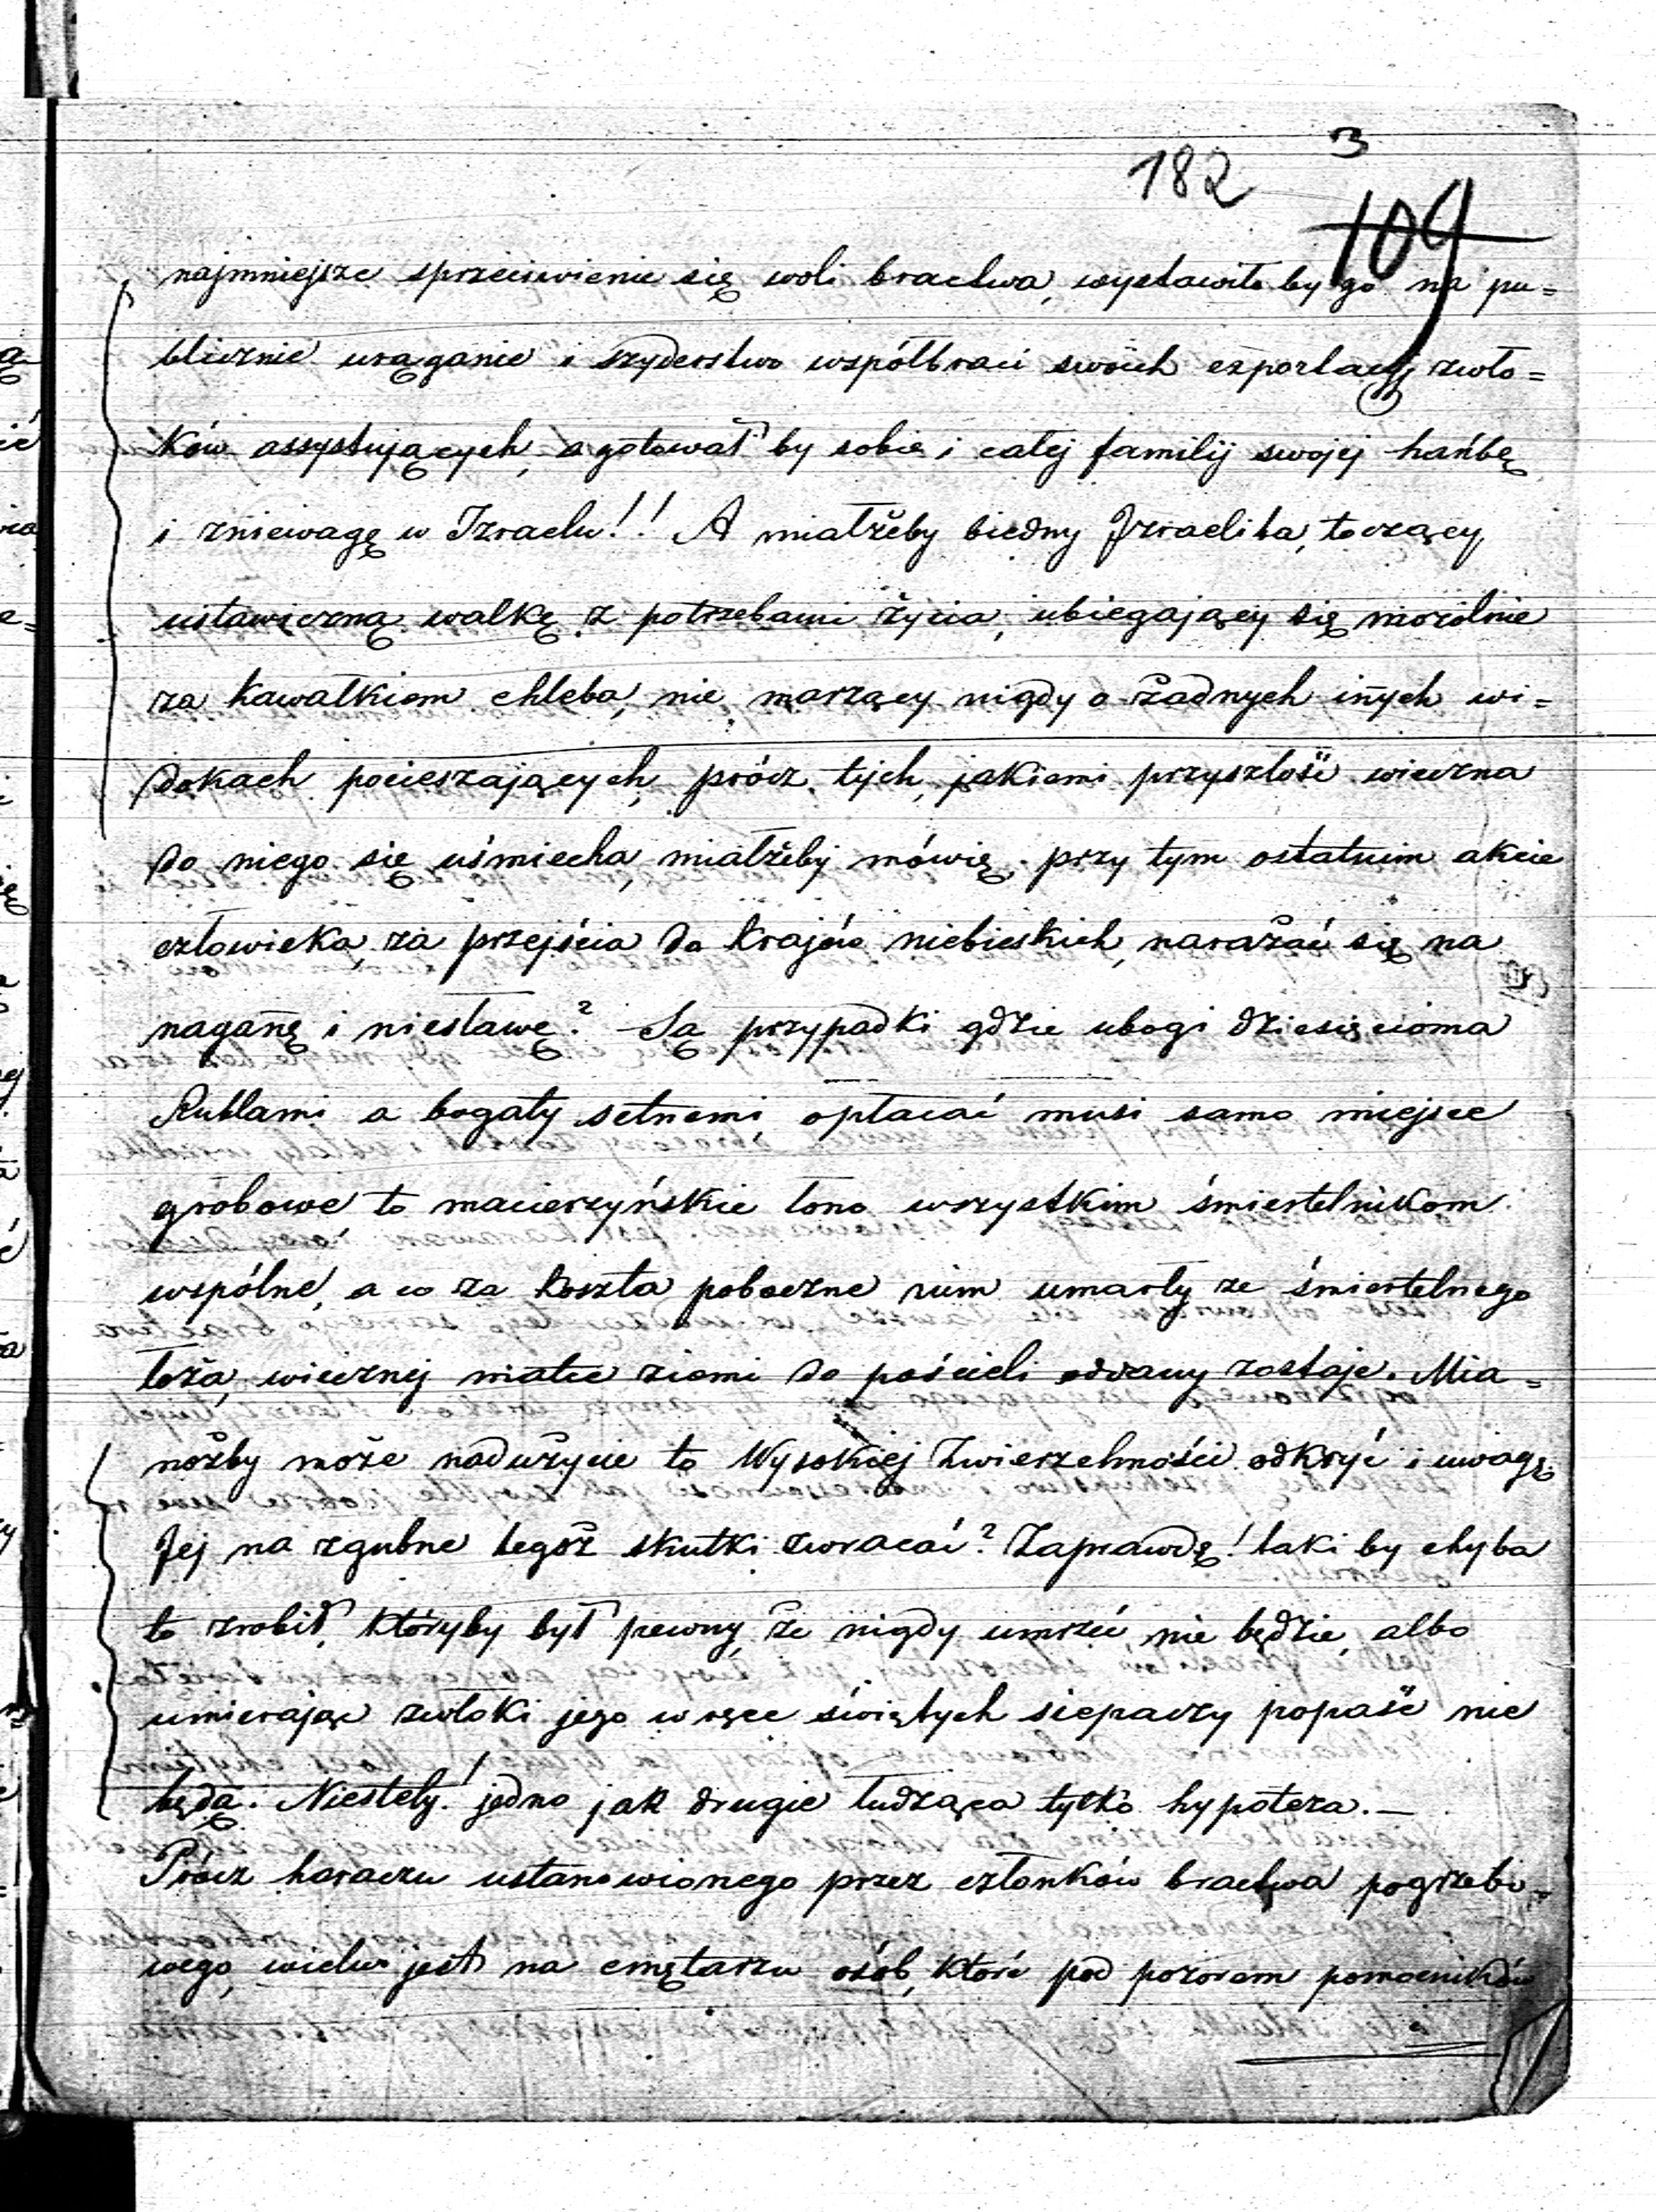 182 3
109
najmniejsze sprzeciwienie się woli bractwa, wystawiło by go na pu=
blicznie urąganie i szyderstwo współbraci swoich exportacyj zwło=
ków assystujących, a gotował by sobie i całej familij swojej hańbę
i zniewagę w Izraelu!! A miałżeby biedny Izraelita, toczący
ustawiczną walkę z potrzebami życia, ubiegający się mozolnie
za kawałkiem chleba, nie marzący nigdy o żadnych inych wi=
dokach pocieszających, prócz tych, jakiemi przyszłość wieczna
do niego się uśmiecha, miałżeby mówię przy tym ostatnim akcie
człowieka, za przejścia do krajów niebieskich, narażać się na
naganę i niesławę? Są przypadki gdzie ubogi dziesięcioma
Rublami a bogaty setnemi opłacać musi samo miejsce
grobowe to macierzyńskie łono wszystkim śmiertelnikom
wspólne, a co za koszta poboczne nim umarły ze śmiertelnego
łoża, wiecznej matce ziemi do pościeli oddany zostaje. Mia=
nożby może nadużycie to Wysokiej Zwierzchności odkryć i uwagę
Jej na zgubne tegóż skutki zwracać? Zaprawdę! taki by chyba
to zrobił, któryby był pewny, że nigdy umrzeć nie będzie, albo
umierając zwłoki jego w ręce świętych siepaczy popaść nie
będą. Niestety! jedno jak drugie łudząca tylko hypoteza.—
Prócz haraczu ustanowionego przez członków bractwa pogrzebo=
wego, wielu jest na cmętarzu osób, które pod pozorem pomocników